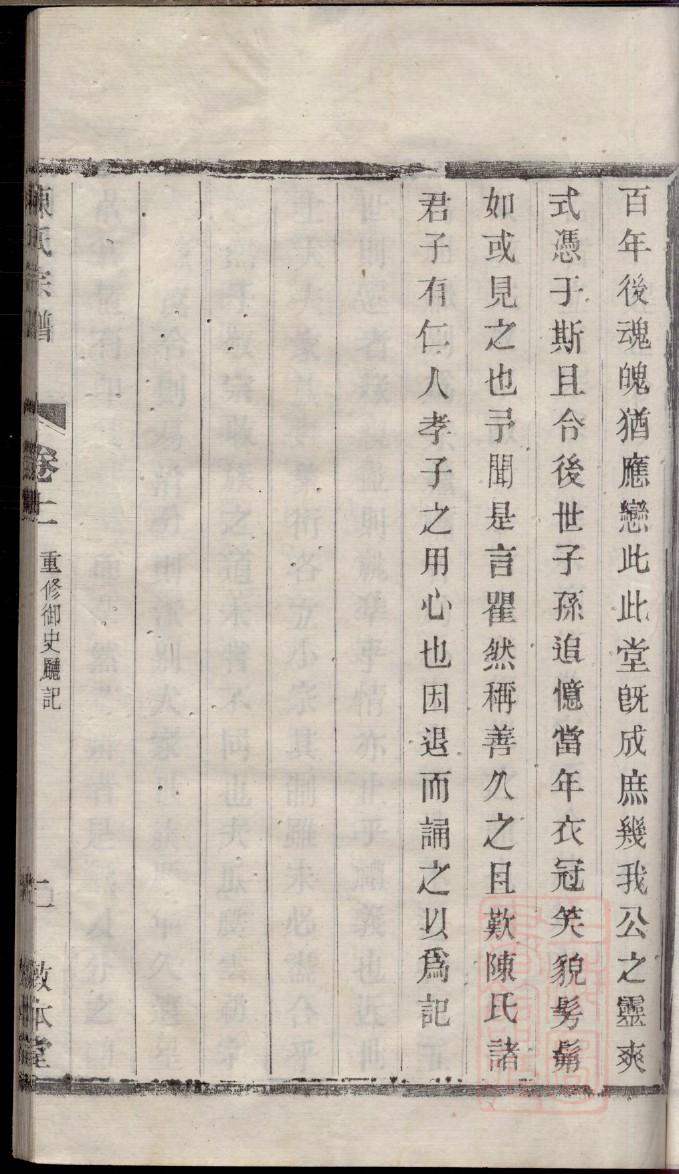 百年後魂魄猶應戀此此堂旣成庶幾我公之靈爽
式憑于斯且令後世子孫追憶當年衣冠笑貌髣髴
如或見之也予聞是言瞿然稱善久之且歎陳氏諸
君子有仁人孝子之用心也因退而誦之以爲記
陳氏宗譜
卷十
重修御史廳記
二
敦本堂